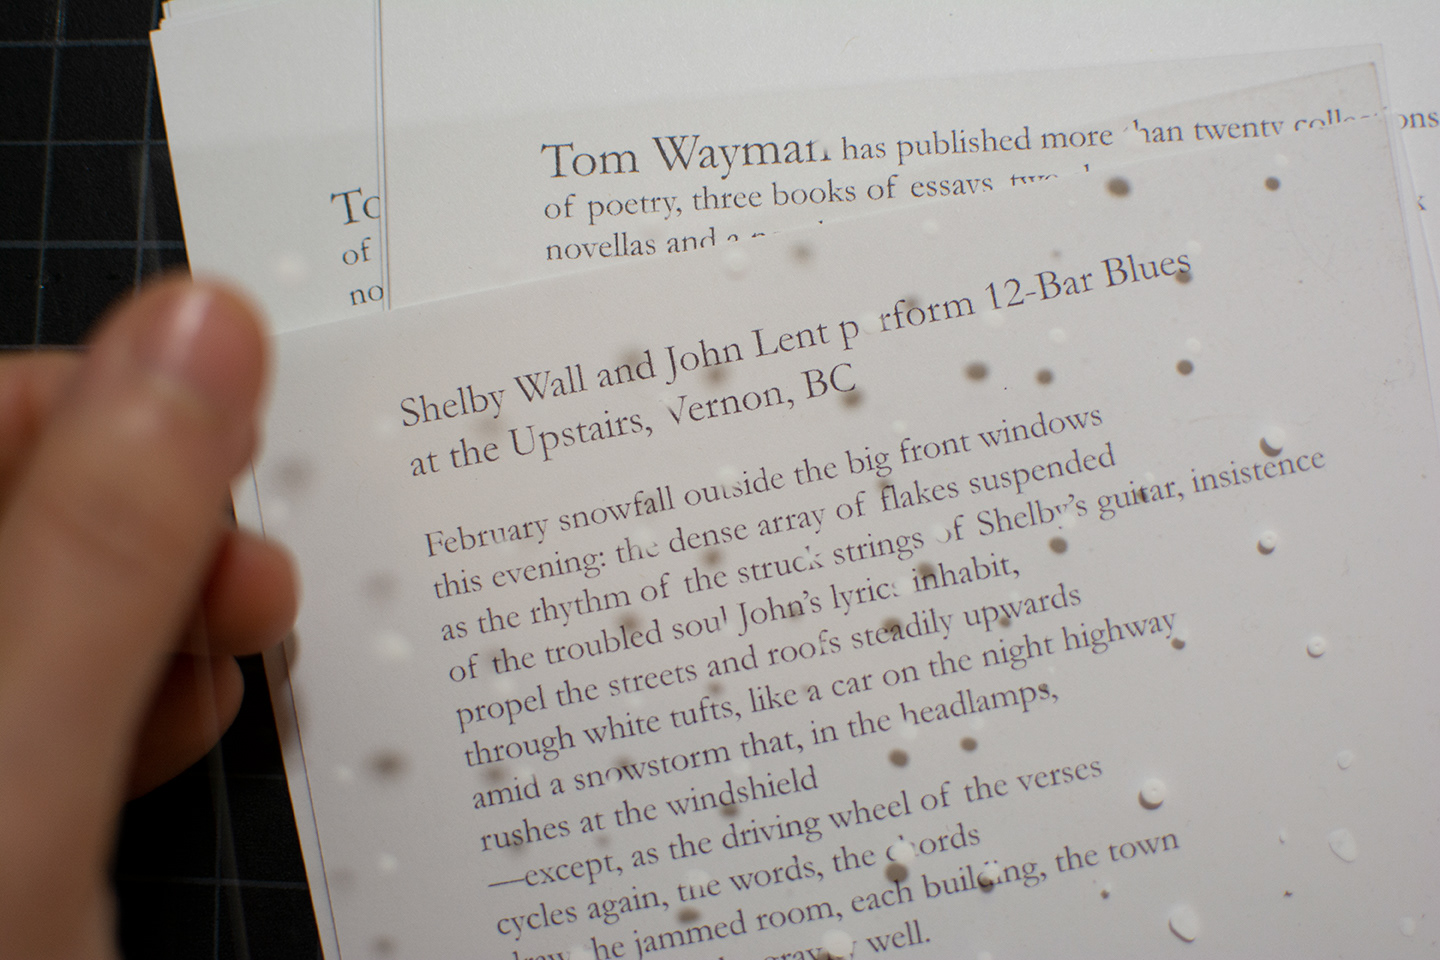 Tom Wayman has published more than twenty collections
of poetry, three books of essays, two
novellas and a
To
of
no
Shelby Wall and John Lent perform 12-Bar Blues
at the Upstairs, Vernon, BC
February snowfall outside the big front windows
this evening: the dense array of flakes suspended
as the rhythm of the struck strings of Shelby's guitar, insistence
of the troubled soul John's lyrics inhabit,
propel the streets and roofs steadily upwards
through white tufts, like a car on the night highway
amid a snowstorm that, in the headlamps,
rushes at the windshield
—except, as the driving wheel of the verses
cycles again, the words, the chords
the jammed room, each building, the town
gravity well.